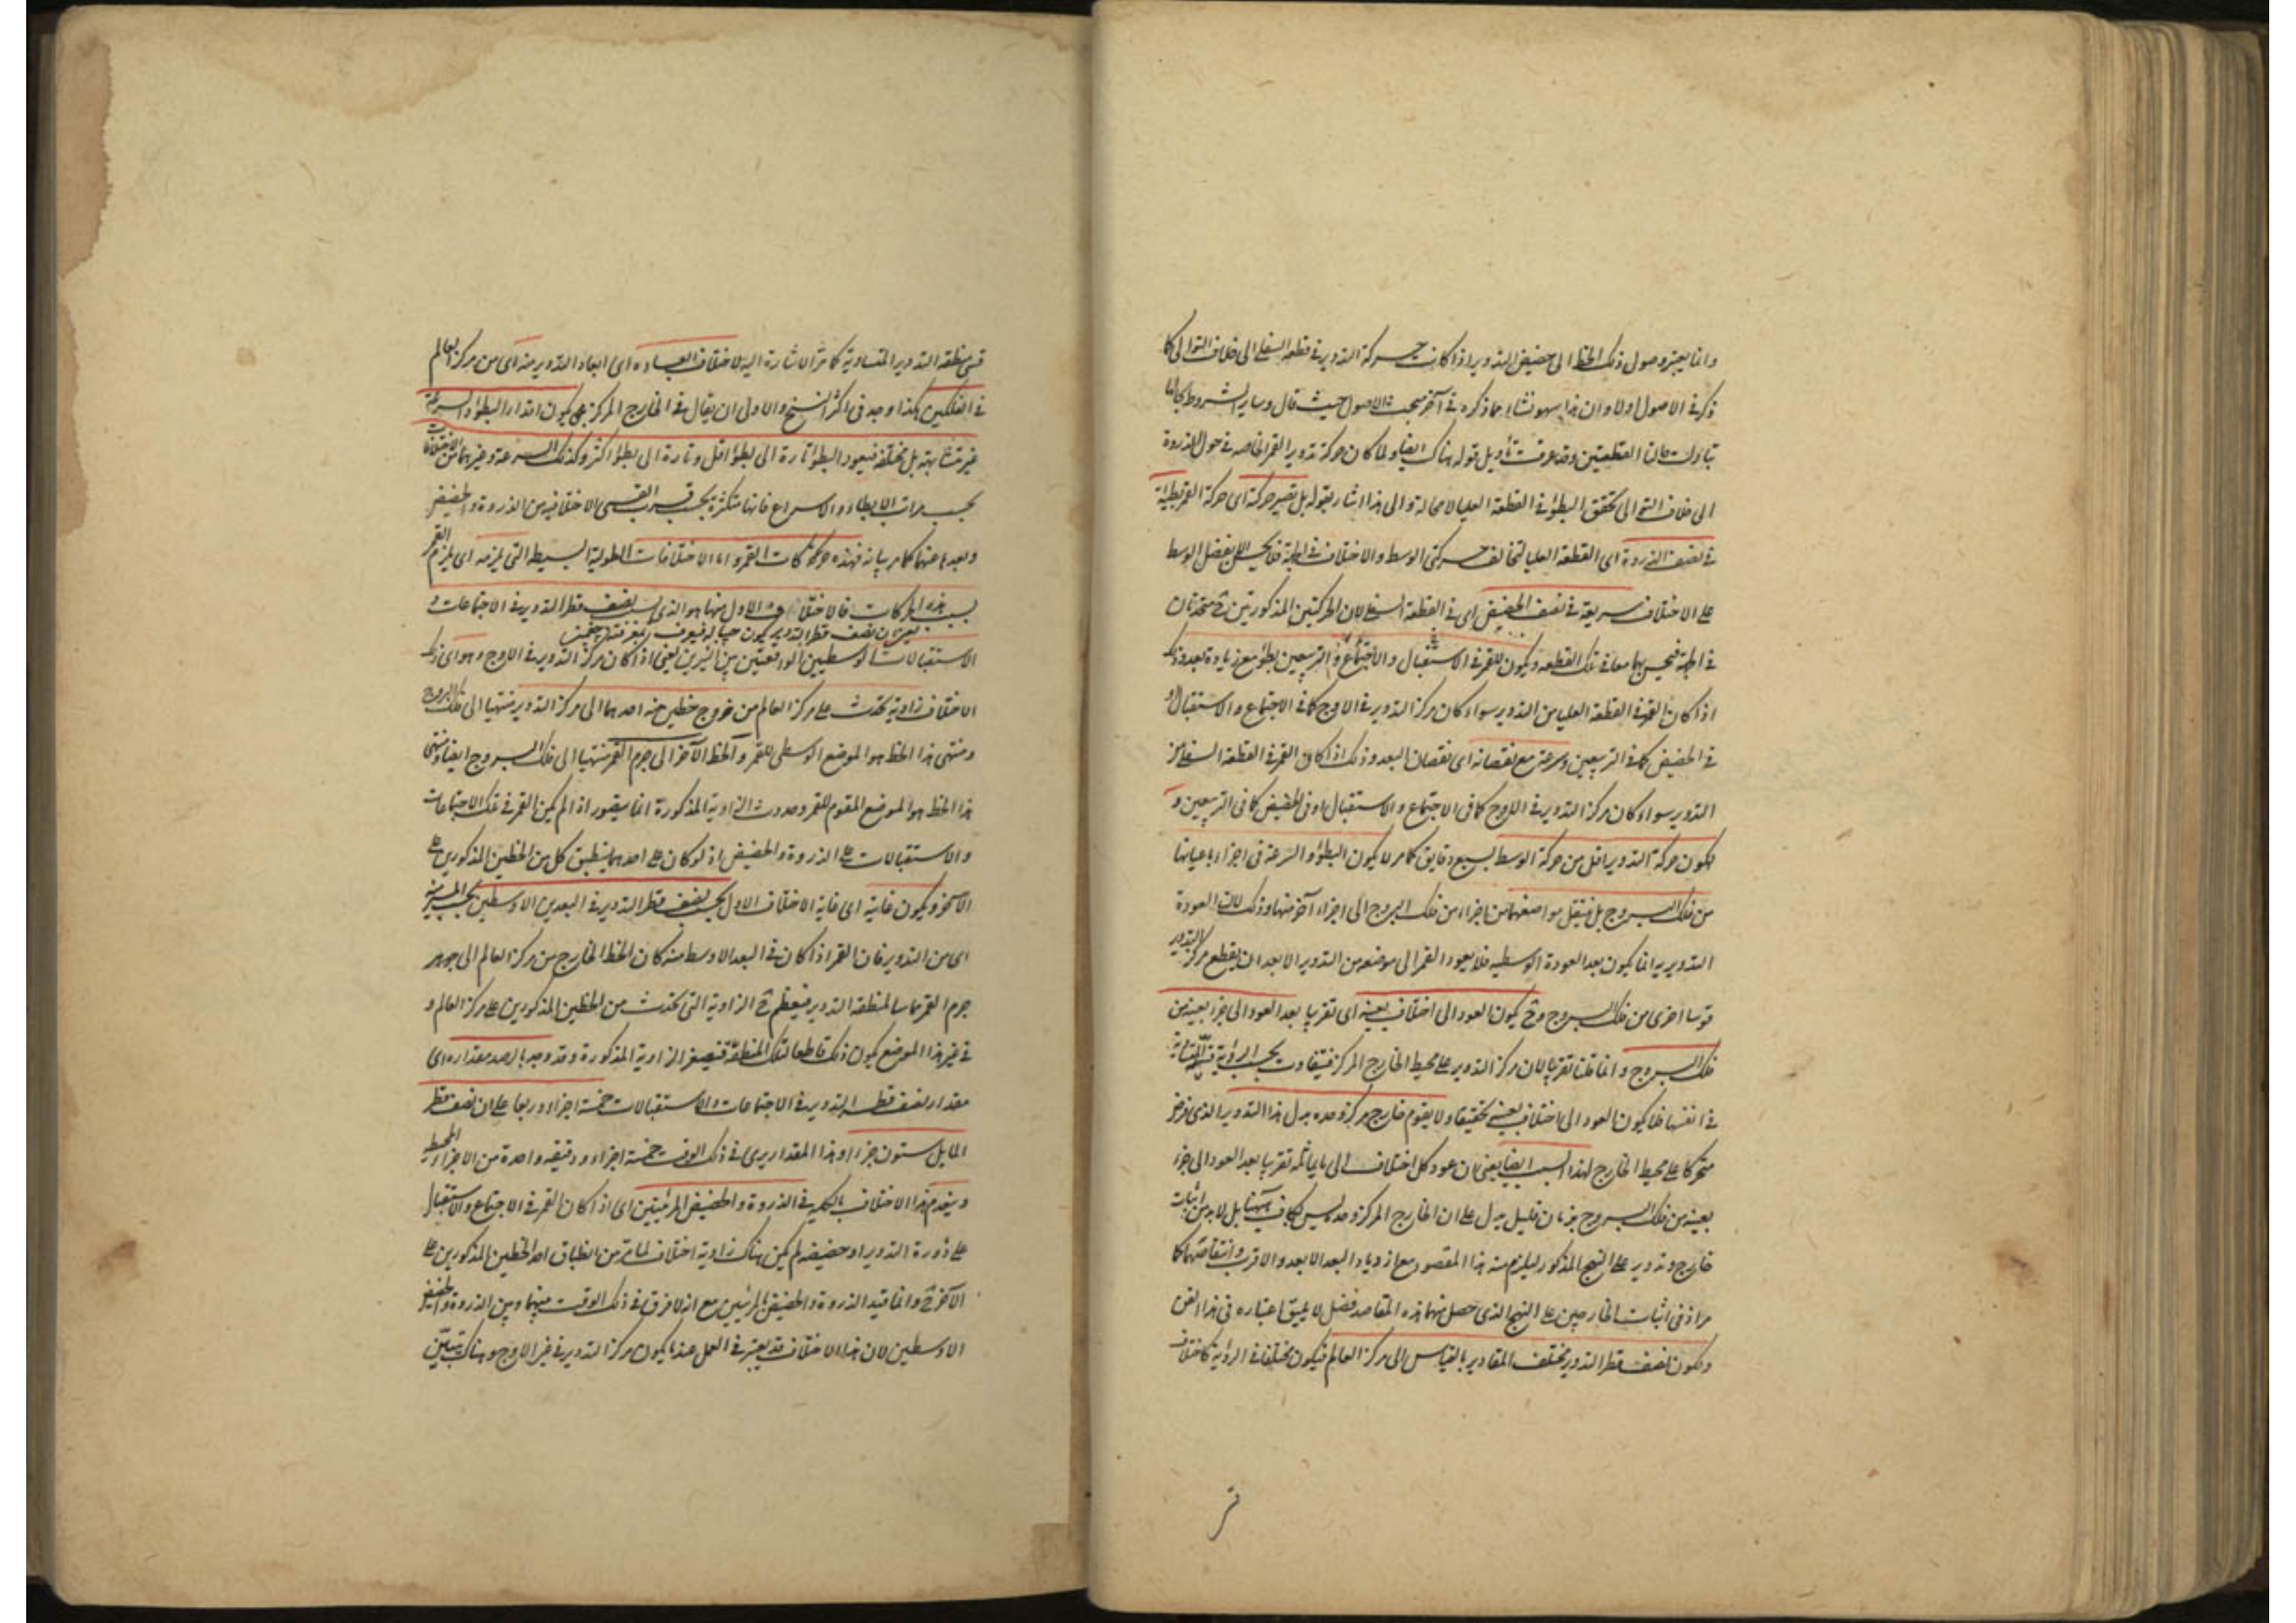 وانما يعتبر وصول ذلك الخط الى حضيض التدوير اذا كانت حركة التدوير في قطعه السفلى الى خلاف التوالى كما
ذكر في الاصول اولا وان هذا سهو نشأ مما ذكره في آخر مبحث الاصول حيث قال وساير الشروط بحالها
تبادلت حالتا القطعتين وقد عرفت تأويل قوله هناك ايضا ولما كان حركة تدوير القمر الخاصه في حوالى الذروة
الى خلاف التوالى تحقق البطؤ في القطعة العليا لا محالة والى هذا اشار بقوله بل تصير حركة اى حركة القمر بطيئة
في نصف الذروة اى القطعة العليا لتخالف حركتى الوسط والاختلاف في الجهة فالمحسوس بفضل الوسط
على الاختلاف سريعة في نصف الحضيض اى في القطعة السفلى لان الحركتين المذكورتين ح متحدتان
في الجهة فيحس بهما معا في تلك القطعه ويكون للقمر في الاستقبال والاجتماع والتربيعين بطؤ مع زيادة بعد وذلك
اذا كان القمر في القطعة العليا من التدوير سواء كان مركز التدوير في الاوج كما في الاجتماع والاستقبال او
في الحضيض كما في التربيعين وسرعة مع نقصانه اى نقصان البعد وذلك اذا كان القمر في القطعة السفلى من
التدوير سواء كان مركز التدوير في الاوج كما في الاجتماع والاستقبال او في الحضيض كما في التربيعين و
لكون حركة التدوير اقل من حركة الوسط بسبع دقايق كما مر لا يكون البطؤ والسرعة في اجزاء باعيانها
من فلك البروج بل ينتقل مواضعهما من اجزاء من فلك البروج الى اجزاء آخر منها وذلك لان العودة
التدويريه انما يكون بعد العودة الوسطيه فلا يعود القمر الى موضعه من التدوير الا بعد ان يقطع مركز التدوير
قوسا اخرى من فلك البروج وح يكون العود الى اختلاف بعينه اى تقريبا بعد العود الى جزء بعينه من
فلك البروج وانما قلنا تقريبا لان مركز التدوير على محيط الخارج المركز فيتفاوت بحسب الرؤية قسيه المتشابهة
في انفسها فلا يكون العود الى اختلاف بعينه تحقيقا ولا يقوم خارج مركز وحده بدل هذا التدوير الذى فرض
متحركا على محيط الخارج لهذا السبب ايضا يعنى ان عود كل اختلاف الى ما يماثله تقريبا بعد العود الى جزء
بعينه من فلك البروج بزمان قليل يدل على ان الخارج المركز وحده ليس بكاف ههنا بل لا بد من اثبات
خارج وتدوير على النهج المذكور ليلزم منه هذا المقصود مع ازدياد البعد الابعد والاقرب وانتقاصهما كما
مر اذ في اثبات الخارجين على النهج الذى حصل منهما هذه المقاصد فضل لا يليق اعتباره في هذا الفن
ولكون نصف قطر التدوير مختلف المقادير بالقياس الى مركز العالم فيكون مختلفا في الرؤية كاختلاف
قسى منطقه التدوير المتساوية كما مر الاشارة اليه لاختلاف ابعاده اى ابعاد التدوير منه اى من مركز العالم
في الفلكين هكذا وجد في اكثر النسخ والاولى ان يقال في الخارج المركز يكون مقدار البطؤ والسرعة
غير متشابهة بل مختلفة فيعود البطؤ تارة الى بطؤ اقل وتارة الى بطؤ اكثر وكذلك السرعة وغيرهما من الاختلافات
بحسب مراتب الابطاء والاسراع فانها متكثرة بحسب قرب القسى الاختلافيه من الذروة والحضيض
وبعدها عنهما كما مر بيانه فهذه حركات القمر واما الاختلافات الطولية البسيطة التى يلزمه اى يلزم القمر
بسبب هذه الحركات فالاختلاف الاول منها هو الذى بسبب نصف قطر التدوير في الاجتماعات و
الاستقبالات الوسطيين الواقعتين بين النيرين يعنى اذا كان مركز التدوير في الاوج وهو اى ذلك
الاختلاف زاوية تحدث على مركز العالم من خروج خطين منه احدهما الى مركز التدوير منتهيا الى فلك البروج
ومنتهى هذا الخط هو الموضع الوسطى للقمر والخط الآخر الى جرم القمر منتهيا الى فلك البروج ايضا ومنتهى
هذا الخط هو الموضع المقوم للقمر وحدوث الزاوية المذكورة انما يتصور اذا لم يكن القمر في تلك الاجتماعات
والاستقبالات على الذروة والحضيض اذ لو كان على احدهما ينطبق كل من الخطين المذكورين على
الآخر ويكون غايته اى غاية الاختلاف الاول بحسب نصف قطر التدوير في البعدين الاوسطين بحسب المسير منه
اى من التدوير فان القمر اذا كان في البعد الاوسط منه كان الخط الخارج من مركز العالم الى جوهر
جرم القمر مماسا لمنطقة التدوير فيعظم ح الزاوية التى تحدث من الخطين المذكورين على مركز العالم و
في غير هذا الموضع يكون ذلك قاطعا لتلك المنطقة فتصغر الزاوية المذكورة وقد وجد بالرصد مقداره اى
مقدار نصف قطر التدوير في الاجتماعات والاستقبالات خمسة اجزاء وربعا على ان نصف قطر
المايل ستون جزءا وهذا المقدار يرى في ذلك الوقت خمسة اجزاء ودقيقة واحدة من الاجزاء المحيط
وينعدم هذا الاختلاف بالكليه في الذروة والحضيض المرئيتين اى اذا كان القمر في الاجتماع والاستقبال
على ذروة التدوير او حضيضه لم يكن هناك زاوية اختلاف لما مر من انطباق احد الخطين المذكورين على
الآخر ح وانما قيد الذروة والحضيض بالمرئيين مع انه لا فرق في ذلك الوقت بينهما وبين الذروة والحضيض
الاوسطين لان هذا الاختلاف قد يعتبر في العمل عند ما يكون مركز التدوير في غير الاوج وهناك يتبين